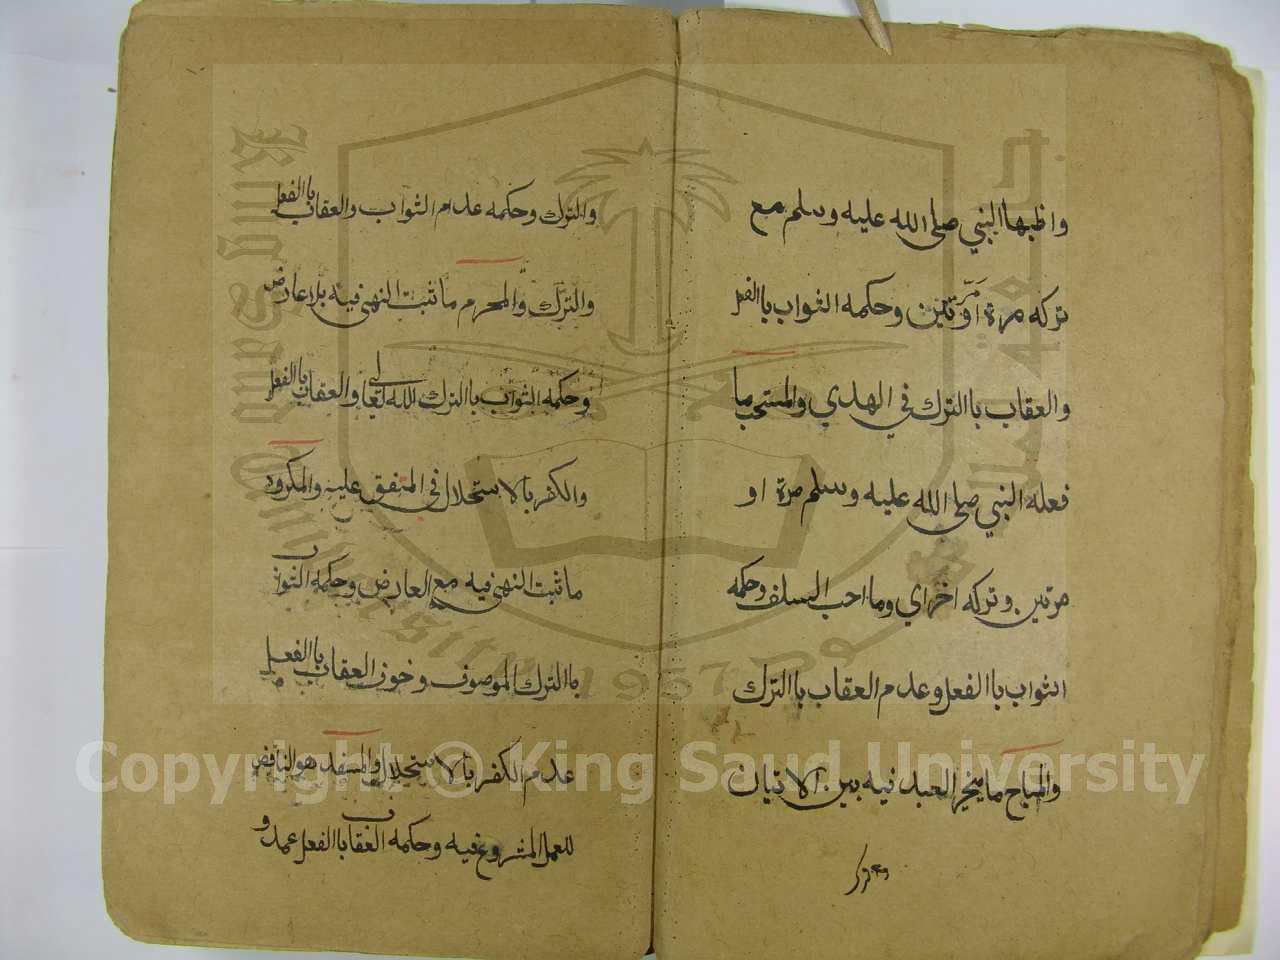 واظبها النبي صلى الله عليه وسلم مع
تركه مرة او مرتين وحكمه الثواب باالفعل
والعقاب باالترك في الهدي والمستحب ما
فعله النبي صلى الله عليه وسلم مرة او
مرتين وتركه اخراي وما احب السلف وحكمه
الثواب باالفعل وعدم العقاب باالترك
والمباح ما يخير العبد فيه بين الاتيان
والترك وحكمه عدم الثواب والعقاب باالفعل
والترك والمحرم ما ثبت النهى فيه بلا عارض
وحكمه الثواب باالترك لله تعالى والعقاب باالفعل
والكفر بالاستحلال فى المتفق عليه والمكروه
ما ثبت النهى فيه مع العارض وحكمه الثواب
باالترك الموصوف وخوف العقاب باالفعل
عدم الكفر بالاستحلال والمفسد هو الناقض
للعمل المشروع فيه وحكمه العقاب باالفعل عمدو
Copyright © King Saud University
King Saud University
1957